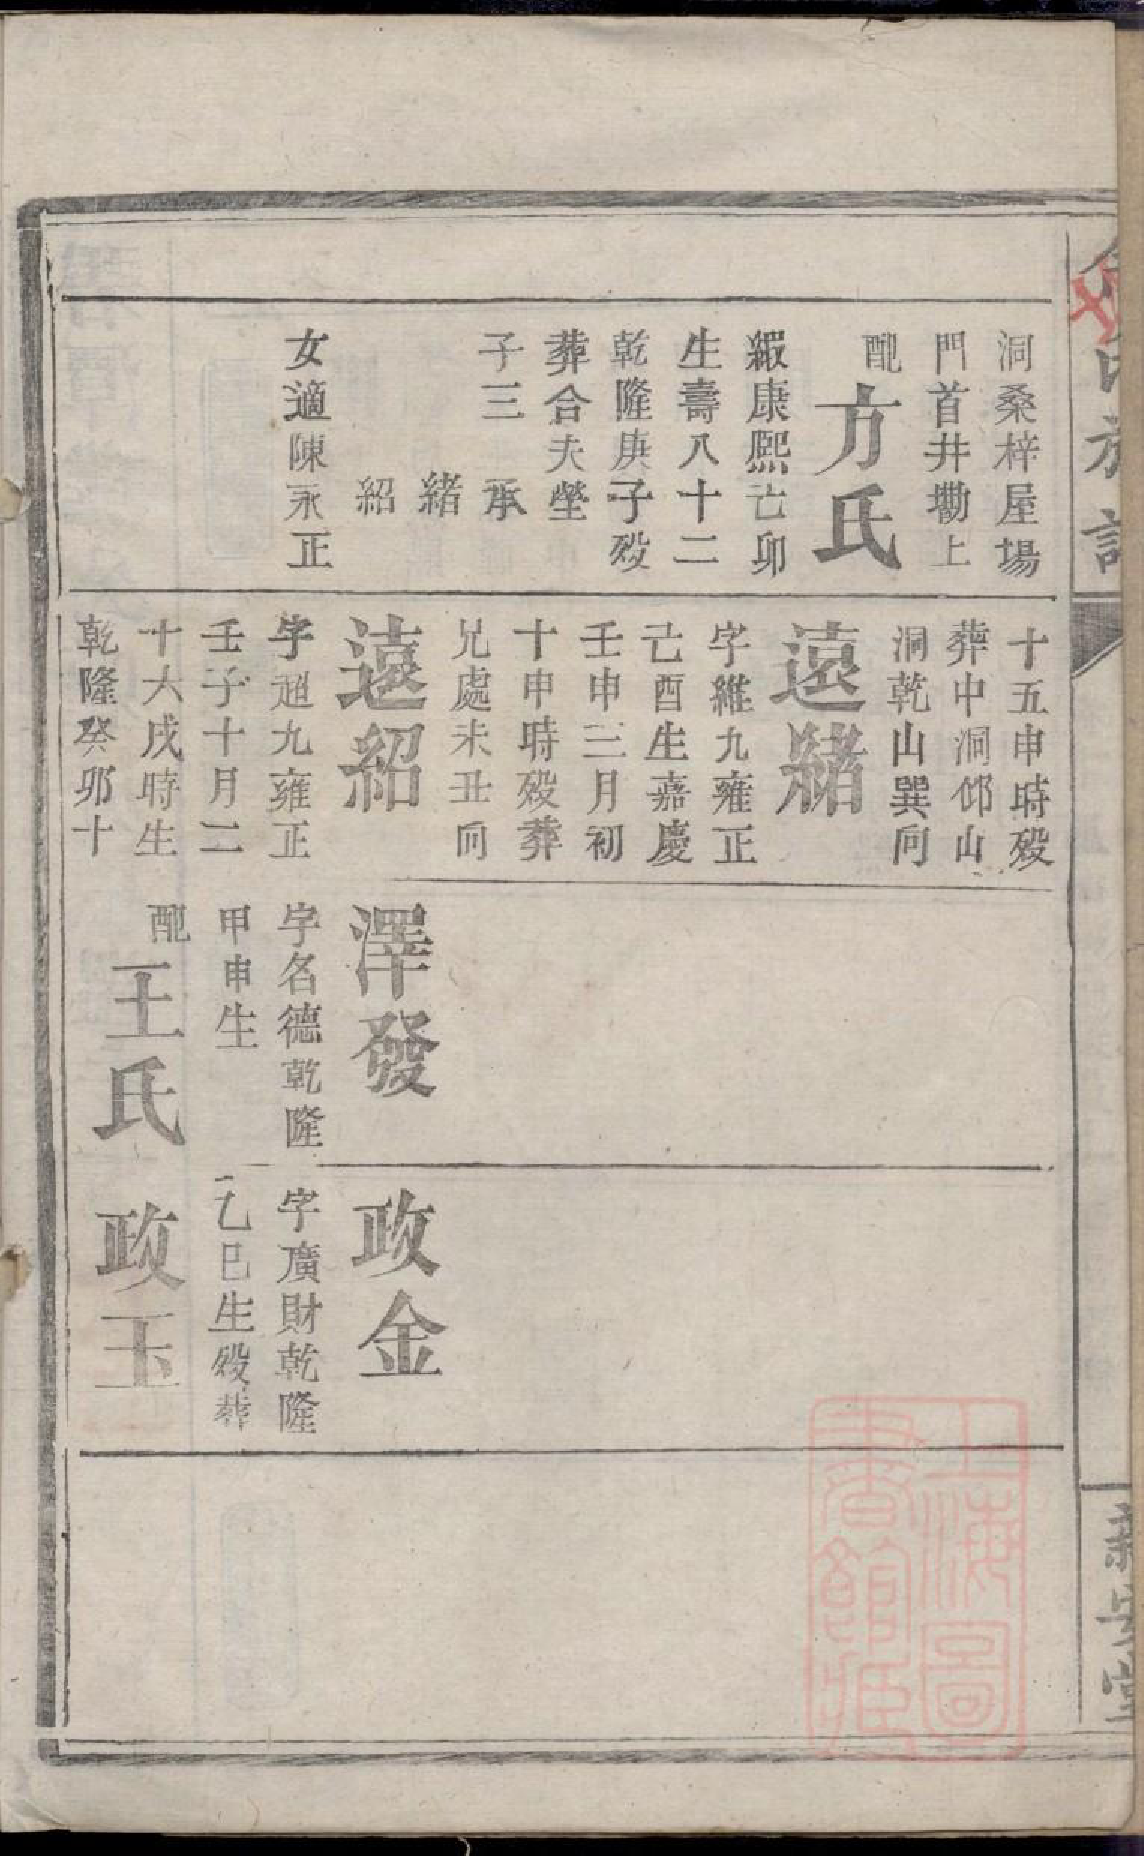 洞桑梓屋場
門首井塝上
配
方氏
緞康熙己卯
生壽八十二
乾隆庚子歿
葬合夫塋
子三 承
緒
紹
女適陳永正
十五申時歿
葬中洞邰山
洞乾山巽向
遠緒
字維九雍正
己酉生嘉慶
壬申三月初
十申時歿葬
兄處未丑向
遠紹
字超九雍正
壬子十月二
十六戌時生
乾隆癸卯十
澤發
字名德乾隆
甲申生
配
王氏
政金
字廣財乾隆
乙巳生歿葬
政玉
上海圖
書館藏